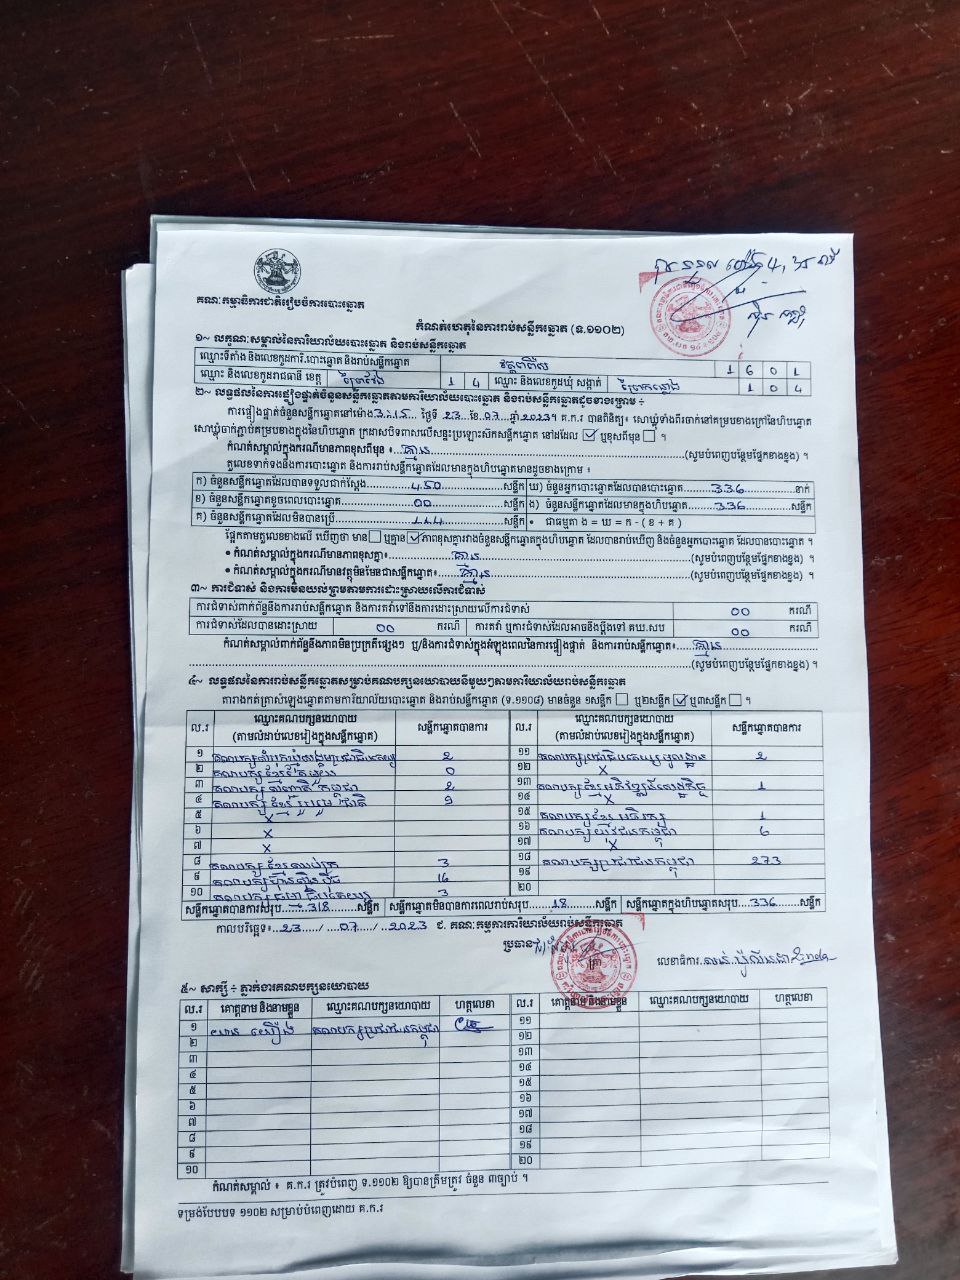 គណៈកម្មាធិការជាតិរៀបចំការបោះឆ្នោត
កំណត់ហេតុនៃការរាប់សន្លឹកឆ្នោត (ទ.១១០២)
១~ លក្ខណៈសម្គាល់នៃការិយាល័យបោះឆ្នោត និងរាប់សន្លឹកឆ្នោត
ឈ្មោះទីតាំង និងលេខកូដការិ.បោះឆ្នោត និងរាប់សន្លឹកឆ្នោត 1 6 0 1
ឈ្មោះ និងលេខកូដរាជធានី ខេត្ត ព្រៃវែង 1 4 ឈ្មោះ និងលេខកូដឃុំ សង្កាត់ 1 0 4
២~ លទ្ធផលនៃការផ្ទៀងផ្ទាត់ចំនួនសន្លឹកឆ្នោតតាមការិយាល័យបោះឆ្នោត និងរាប់សន្លឹកឆ្នោតដូចខាងក្រោម ÷
ការផ្ទៀងផ្ទាត់ចំនួនសន្លឹកឆ្នោតនៅម៉ោង 3:15 ថ្ងៃទី 23 ខែ 07 ឆ្នាំ 2023។ គ.ក.រ បានពិនិត្យ៖ សោឃ្លុំទាំងពីរចាក់នៅគម្របខាងក្រៅនៃហិបឆ្នោត
សោឃ្លុំចាក់ភ្ជាប់គម្របខាងក្នុងនៃហិបឆ្នោត ក្រដាសបិទពាសលើសន្ទះប្រឡោះសិកសន្លឹកឆ្នោត នៅដដែល ☑ ឬខុសពីមុន ☐ ។
កំណត់សម្គាល់ក្នុងករណីមានភាពខុសពីមុន ៖ គ្មាន (សូមបំពេញបន្ថែមផ្នែកខាងខ្នង) ។
តួលេខទាក់ទងនឹងការបោះឆ្នោត និងការរាប់សន្លឹកឆ្នោតដែលមានក្នុងហិបឆ្នោតមានដូចខាងក្រោម ៖
ក) ចំនួនសន្លឹកឆ្នោតដែលបានទទួលជាក់ស្តែង 450 សន្លឹក ឃ) ចំនួនអ្នកបោះឆ្នោតដែលបានបោះឆ្នោត 336 នាក់
ខ) ចំនួនសន្លឹកឆ្នោតខូចពេលបោះឆ្នោត 00 សន្លឹក ង) ចំនួនសន្លឹកឆ្នោតដែលមានក្នុងហិបឆ្នោត 336 សន្លឹក
គ) ចំនួនសន្លឹកឆ្នោតដែលមិនបានប្រើ 114 សន្លឹក • ជាធម្មតា ង = ឃ = ក - ( ខ + គ )
ផ្អែកតាមតួលេខខាងលើ ឃើញថា មាន ☐ ឬគ្មាន ☑ ភាពខុសគ្នារវាងចំនួនសន្លឹកឆ្នោតក្នុងហិបឆ្នោត ដែលបានរាប់ឃើញ និងចំនួនអ្នកបោះឆ្នោត ដែលបានបោះឆ្នោត ។
• កំណត់សម្គាល់ក្នុងករណីមានភាពខុសគ្នា៖ គ្មាន (សូមបំពេញបន្ថែមផ្នែកខាងខ្នង) ។
• កំណត់សម្គាល់ក្នុងករណីមានវត្ថុមិនមែនជាសន្លឹកឆ្នោត៖ គ្មាន (សូមបំពេញបន្ថែមផ្នែកខាងខ្នង) ។
៣~ ការជំទាស់ និងការមិនយល់ព្រមតាមការដោះស្រាយលើការជំទាស់
ការជំទាស់ពាក់ព័ន្ធនឹងការរាប់សន្លឹកឆ្នោត និងការតវ៉ាទៅនឹងការដោះស្រាយលើការជំទាស់ 00 ករណី
ការជំទាស់ដែលបានដោះស្រាយ 00 ករណី ការតវ៉ា ឬការជំទាស់ដែលអាចនឹងប្តឹងទៅ គឃ.សប 00 ករណី
កំណត់សម្គាល់ពាក់ព័ន្ធនឹងភាពមិនប្រក្រតីផ្សេងៗ ឬ/និងការជំទាស់ក្នុងអំឡុងពេលនៃការផ្ទៀងផ្ទាត់ និងការរាប់សន្លឹកឆ្នោត៖ គ្មាន
(សូមបំពេញបន្ថែមផ្នែកខាងខ្នង) ។
៤~ លទ្ធផលនៃការរាប់សន្លឹកឆ្នោតសម្រាប់គណបក្សនយោបាយនីមួយៗតាមការិយាល័យរាប់សន្លឹកឆ្នោត
តារាងកត់ត្រាសំឡេងឆ្នោតតាមការិយាល័យបោះឆ្នោត និងរាប់សន្លឹកឆ្នោត (ទ.១១០៨) មានចំនួន ១សន្លឹក ☐ ឬ២សន្លឹក ☑ ឬ៣សន្លឹក ☐ ។
ល.រ ឈ្មោះគណបក្សនយោបាយ (តាមលំដាប់លេខរៀងក្នុងសន្លឹកឆ្នោត) សន្លឹកឆ្នោតបានការ ល.រ ឈ្មោះគណបក្សនយោបាយ (តាមលំដាប់លេខរៀងក្នុងសន្លឹកឆ្នោត) សន្លឹកឆ្នោតបានការ
១ 2 ១១ 2
២ គណបក្សខ្មែរតែមួយ 0 ១២ X
៣ គណបក្ស កម្ពុជា 2 ១៣ គណបក្សខ្មែរអភិវឌ្ឍន៍សេដ្ឋកិច្ច 1
៤ គណបក្សខ្មែររួបរួមជាតិ 9 ១៤ X
៥ X ១៥ គណបក្សខ្មែរអភិរក្ស 1
៦ X ១៦ គណបក្សយុវជនកម្ពុជា 6
៧ X ១៧ X
៨ គណបក្សខ្មែរឈប់ក្រ 3 ១៨ គណបក្សប្រជាជនកម្ពុជា 273
៩ គណបក្សហ្វ៊ុនស៊ិនប៉ិច 16 ១៩
១០ គណបក្សធម្មាធិបតេយ្យ 3 ២០
សន្លឹកឆ្នោតបានការសរុប 318 សន្លឹក សន្លឹកឆ្នោតមិនបានការពេលរាប់សរុប 18 សន្លឹក សន្លឹកឆ្នោតក្នុងហិបឆ្នោតសរុប 336 សន្លឹក
កាលបរិច្ឆេទ៖ 23 / 07 / 2023 ជ. គណៈកម្មការការិយាល័យរាប់សន្លឹកឆ្នោត
ប្រធាន
លេខាធិការ
៥~ សាក្សី ÷ ភ្នាក់ងារគណបក្សនយោបាយ
ល.រ គោត្តនាម និងនាមខ្លួន ឈ្មោះគណបក្សនយោបាយ ហត្ថលេខា ល.រ គោត្តនាម និងនាមខ្លួន ឈ្មោះគណបក្សនយោបាយ ហត្ថលេខា
១ គណបក្សប្រជាជនកម្ពុជា ១១
២ ១២
៣ ១៣
៤ ១៤
៥ ១៥
៦ ១៦
៧ ១៧
៨ ១៨
៩ ១៩
១០ ២០
កំណត់សម្គាល់ ៖ គ.ក.រ ត្រូវបំពេញ ទ.១១០២ ឱ្យបានត្រឹមត្រូវ ចំនួន ៣ច្បាប់ ។
ទម្រង់បែបបទ ១១០២ សម្រាប់បំពេញដោយ គ.ក.រ